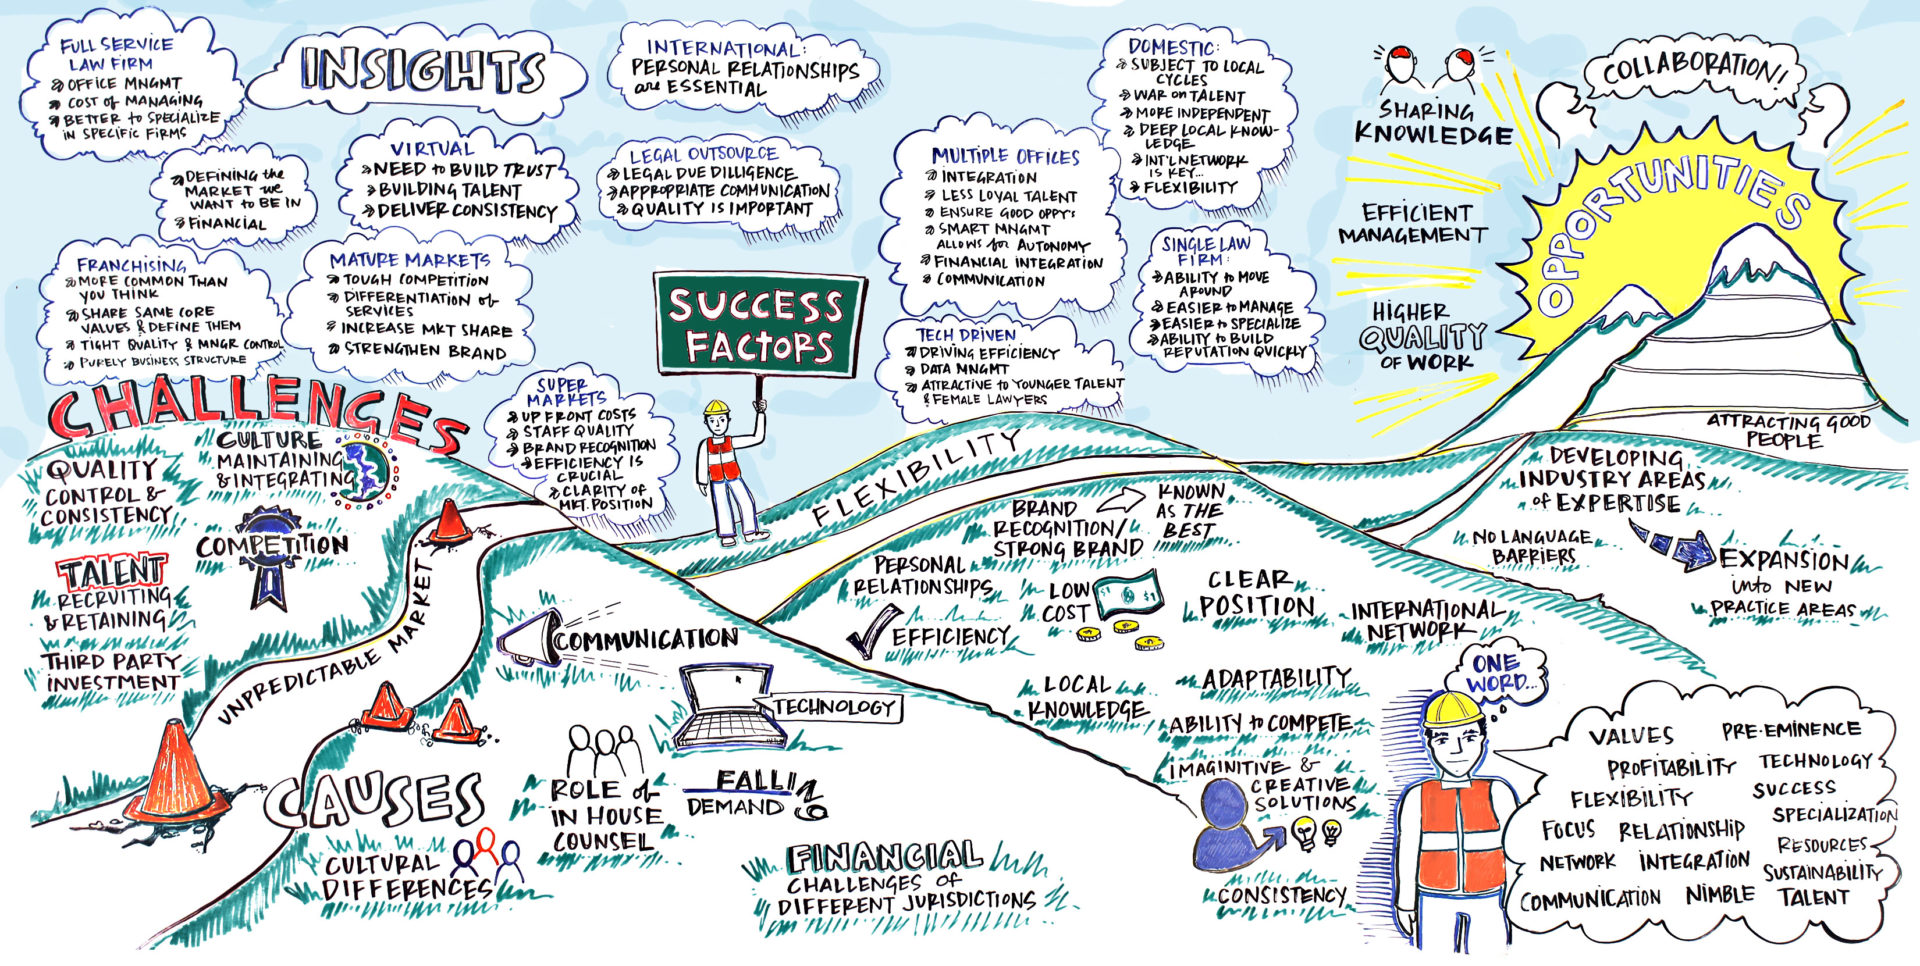 FULL SERVICE
LAW FIRM
OFFICE MNGMT
COST of MANAGING
BETTER to SPECIALIZE
IN SPECIFIC FIRMS
INSIGHTS
INTERNATIONAL:
PERSONAL RELATIONSHIPS
are ESSENTIAL
DEFINING the
MARKET we
WANT to BE IN
FINANCIAL
VIRTUAL
NEED to BUILD TRUST
BUILDING TALENT
DELIVER CONSISTENCY
LEGAL OUTSOURCE
LEGAL DUE DILLIGENCE
APPROPRIATE COMMUNICATION
QUALITY IS IMPORTANT
MULTIPLE OFFICES
INTEGRATION
LESS LOYAL TALENT
ENSURE GOOD OPPY:
SMART MNGMT
ALLOWS for AUTONOMY
FINANCIAL INTEGRATION
COMMUNICATION
DOMESTIC:
SUBJECT TO LOCAL
CYCLES
WAR on TALENT
MORE INDEPENDENT
DEEP LOCAL KNOW-
LEDGE
INT'L NETWORK
IS KEY...
FLEXIBILITY
FRANCHISING
MORE COMMON THAN
YOU THINK
SHARE SAME CORE
VALUES & DEFINE THEM
TIGHT QUALITY & MNGR CONTROL
PURELY BUSINESS STRUCTURE
MATURE MARKETS
TOUGH COMPETITION
DIFFERENTIATION of
SERVICES
INCREASE MKT SHARE
STRENGTHEN BRAND
SUPER
MARKETS
UP FRONT COSTS
STAFF QUALITY
BRAND RECOGNITION
EFFICIENCY IS
CRUCIAL
CLARITY OF
MKT. POSITION
SUCCESS
FACTORS
TECH DRIVEN
DRIVING EFFICIENCY
DATA MNGMT
ATTRACTIVE to YOUNGER TALENT
& FEMALE LAWYERS
SINGLE LAW
FIRM:
ABILITY to MOVE
AROUND
EASIER to MANAGE
EASIER to SPECIALIZE
ABILITY to BUILD
REPUTATION QUICKLY
SHARING
KNOWLEDGE
EFFICIENT
MANAGEMENT
HIGHER
QUALITY
OF WORK
COLLABORATION!
OPPORTUNITIES
ATTRACTING GOOD
PEOPLE
CHALLENGES
QUALITY
CONTROL &
CONSISTENCY
CULTURE
MAINTAINING
& INTEGRATING
COMPETITION
TALENT
RECRUITING
& RETAINING
THIRD PARTY
INVESTMENT
UNPREDICTABLE MARKET
CAUSES
CULTURAL
DIFFERENCES
COMMUNICATION
TECHNOLOGY
ROLE of
IN HOUSE
COUNSEL
FALLING
DEMAND
FINANCIAL
CHALLENGES OF
DIFFERENT JURISDICTIONS
FLEXIBILITY
BRAND
RECOGNITION/
STRONG BRAND
KNOWN
AS THE
BEST
PERSONAL
RELATIONSHIPS
EFFICIENCY
LOW
COST
$1
$1
CLEAR
POSITION
INTERNATIONAL
NETWORK
LOCAL
KNOWLEDGE
ADAPTABILITY
ABILITY to COMPETE
IMAGINITIVE &
CREATIVE
SOLUTIONS
CONSISTENCY
DEVELOPING
INDUSTRY AREAS
of EXPERTISE
NO LANGUAGE
BARRIERS
EXPANSION
into NEW
PRACTICE AREAS
ONE
WORD...
VALUES PRE-EMINENCE
PROFITABILITY TECHNOLOGY
FLEXIBILITY SUCCESS
SPECIALIZATION
FOCUS RELATIONSHIP
RESOURCES
NETWORK INTEGRATION
SUSTAINABILITY
COMMUNICATION NIMBLE TALENT